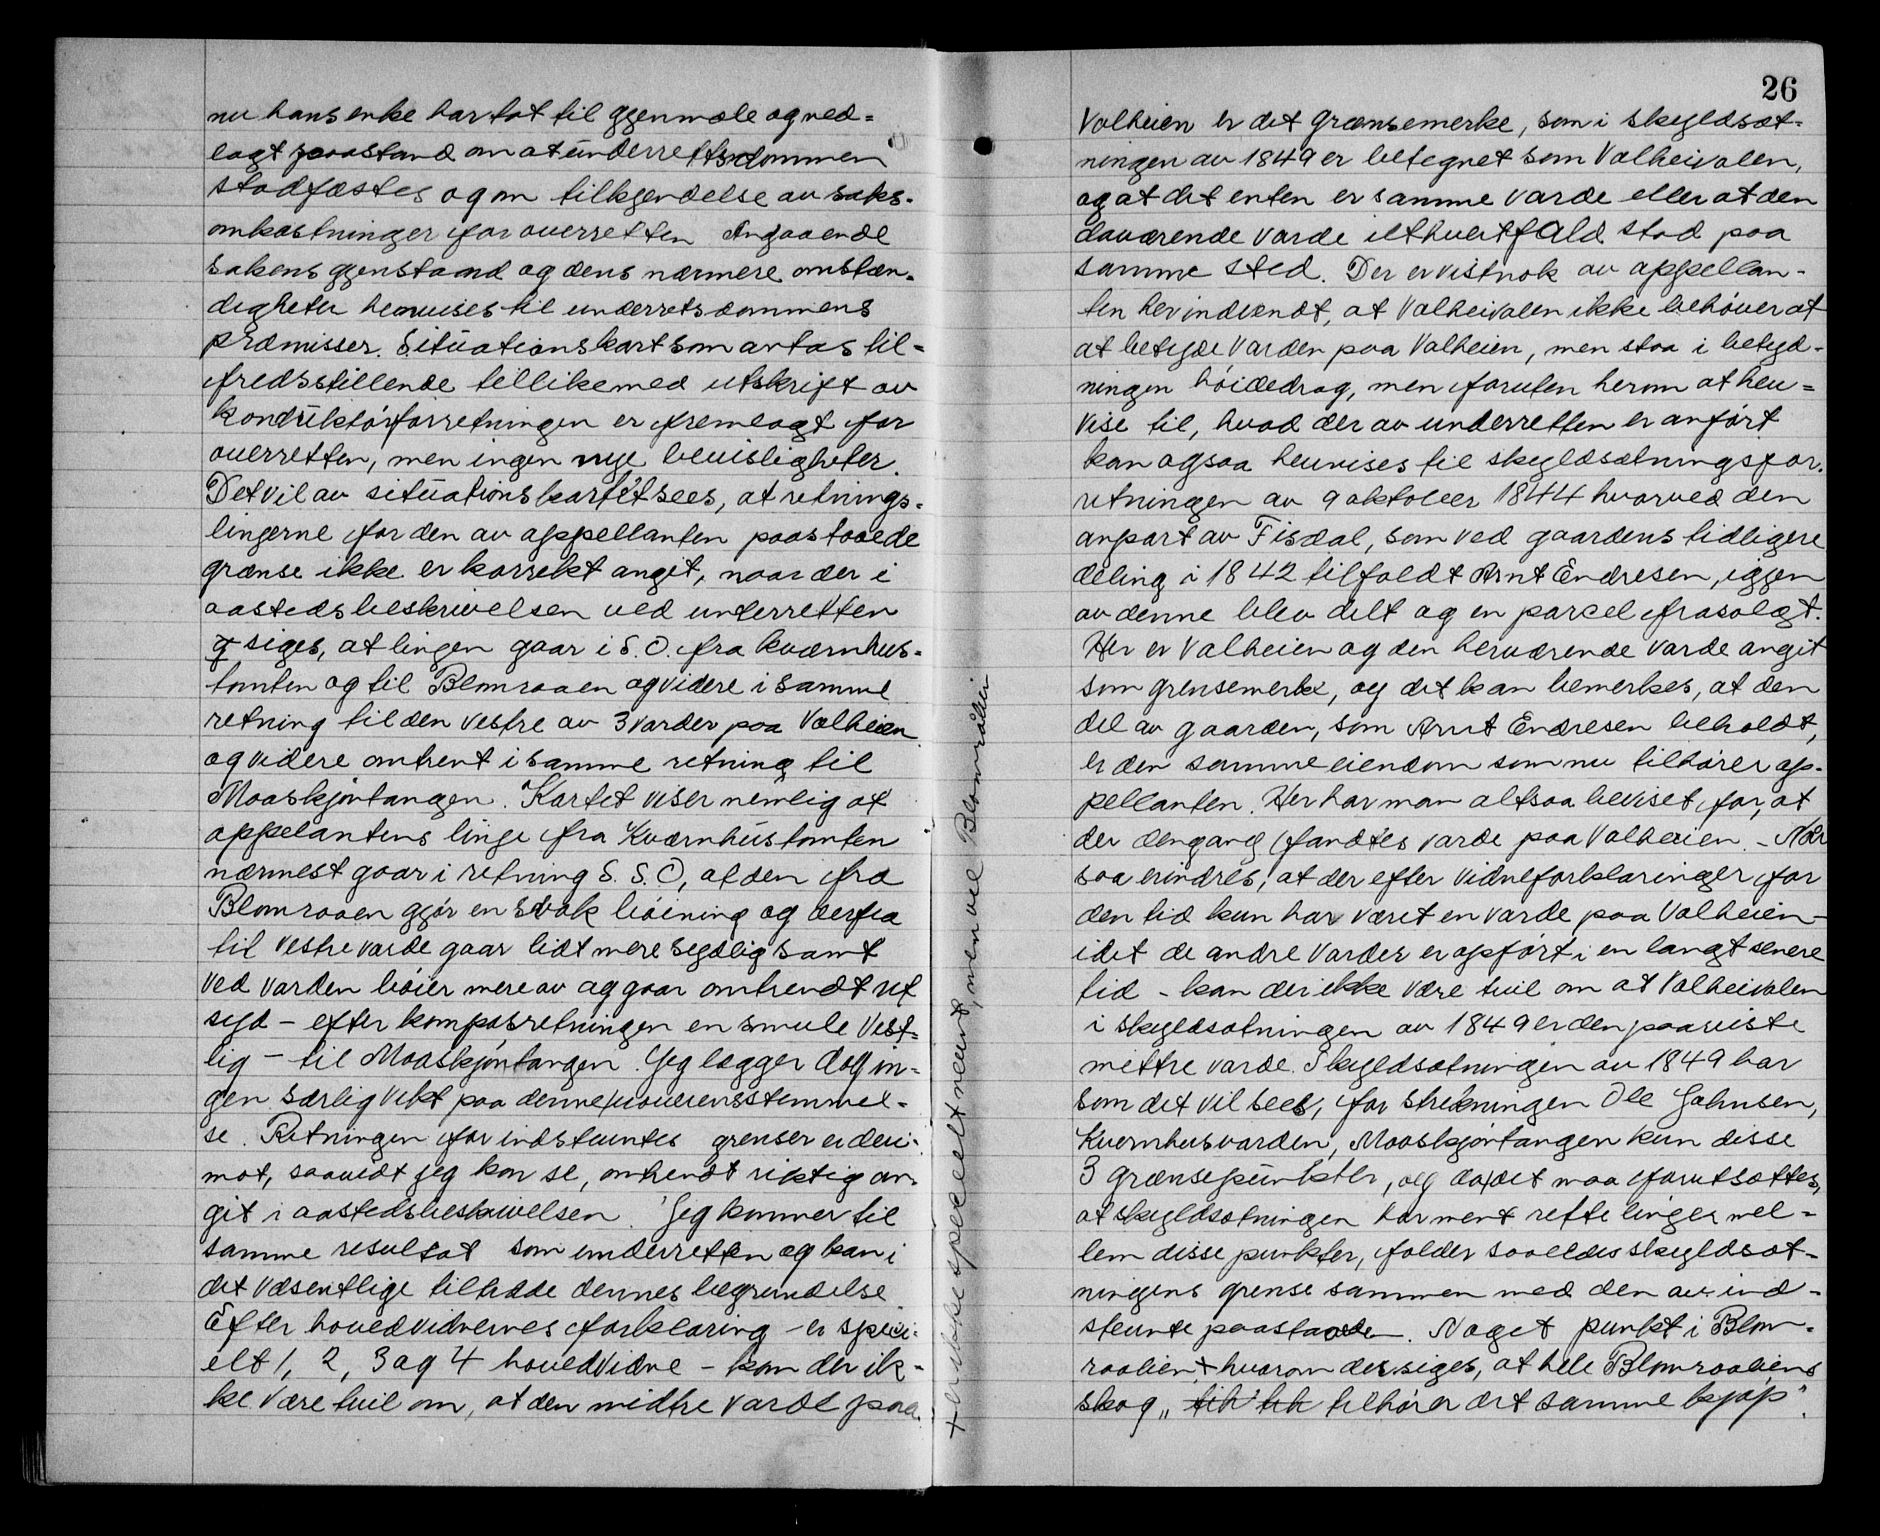 nu hans enke har tat til gjenmæle og ned-
lagt paastand om at underrettsdommen
stadfæstes og om tilkjendelse av saks-
omkostninger for overretten Angaaende
sakens gjenstand og dens nærmere omstæn-
digheter henvises til underretsdommens
præmisser. Situationskart som antas til-
fredsstillende tellikemed utskrift av
konduktörforretningen er fremlagt for
overretten, men ingen nye bevisligheter.
Det vil av situationskartet sees, at retnings-
linjerne for den av appellanten paastaaede
grænse ikke er korrekt angit, naar der i
aastedsbeskrivelsen ved underretten
siges, at linjen gaar i S.O. fra kværnhus-
tomten og til Blomraaen og videre i samme
retning til den vestre av 3 varder paa Valheien
og videre omtrent i samme retning til
Maaskjørtangen. Kartet viser nemlig at
appelantens linje fra Kværnhustomten
nærmest gaar i retning S.S.O, at den fra
Blomraaen gjør en svak bøining og derfra
til vestre varde gaar lidt mere sydlig samt
ved varden bøier mere av og gaar omtrendt ret
syd - efter kompasretningen en smule vest-
lig - til Maaskjørtangen. Jeg lægger dog in-
gen særlig vekt paa denne uoverensstemmel-
se. Retningen for indstevntes grenser er deri-
mot, saavidt jeg kan se, omtrendt riktig an-
git i aastedsbeskrivelsen. Jeg kommer til
samme resultat som underretten og kan i
det væsentlige tiltræde dennes begrundelse.
Efter hovedvidnernes forklaring - er speci-
elt 1, 2, 3 og 4 hovedvidne - kan der ik-
ke være tvil om, at den midtre varde paa
+ er ikke specielt nevnt, men vel Blområlien
26
Valheien er det grænsemerke, som i skyldsæt-
ningen av 1849 er betegnet som Valheivalen,
og at det enten er samme varde eller at den
daværende varde ilthvertfald stod paa
samme sted. Der er vistnok av appellan-
ten her indvendt, at Valheivalen ikke behøver at
at betyde Varden paa Valheien, men staa i betyd-
ningen høidedrag, men foruten herom at hen-
vise til, hvad der av underretten er anført
kan ogsaa henvises til skyldsætningsfor-
retningen av 9 oktober 1844 hvorved den
anpart av Fisdal, som ved gaardens tidligere
deling i 1842 tilfaldt Arnt Endresen, igjen
av denne blev delt og en parcel frasolgt.
Her er Valheien og den herværende varde angit
som grensemerke, og det kan bemerkes, at den
del av gaarden, som Arnt Endresen beholdt,
er den samme eiendom som nu tilhører ap-
pellanten. Her har man altsaa beviset for, at
der dengang fandtes varde paa Valheien. - Når
saa erindres, at der efter vidneforklaringer for
den tid kun har været en varde paa Valheien -
idet de andre varder er opført i en langt senere
tid - kan der ikke være tvil om at Valheivalen
i skyldsætningen av 1849 er den paaviste
mittre varde. Skyldsætningen av 1849 har
som det vil sees, for strekningen Ole Johnsen,
Kvernhusvarden, Maaskjørtangen kun disse
3 grænsepunkter, og da det maa forutsættes,
at skyldsætningen har ment rette linjer mel-
lem disse punkter, falder saaledes skyldsæt-
ningens grense sammen med den av ind-
stevnte paastaaede. Noget punkt i Blom-
raalien + hvorom der siges, at hele Blomraaliens
skog „ tilh tih tilhører det samme kjøp“.